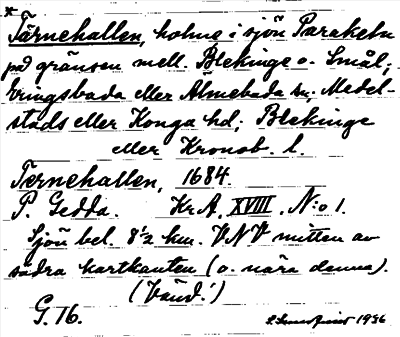 *
Tärnehallen, holme i sjön Parakeln
på gränsen mell. Blekinge o. Smål;
Eringsboda eller Älmeboda sn; Medel-
stads eller Konga hd; Blekinge
eller Kronob. l.
Ternehallen, 1684.
P. Gedda. KrA, XVIII, N:o 1.
Sjön bel. 8½ km. VNV mitten av
södra kartkanten (o. nära denna).
(Vänd!)
G. 16. 1936